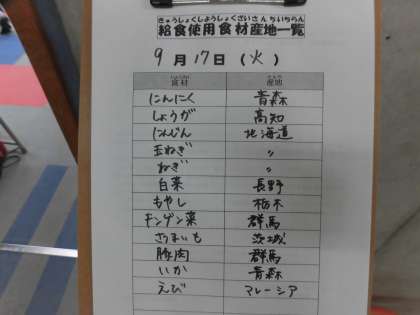 きゅうしょくしようしょくざいさんちいちらん
給食使用食材産地一覧
9月17日(火)
食材 産地
にんにく 青森
しょうが 高知
にんじん 北海道
玉ねぎ 〃
ねぎ 〃
白菜 長野
もやし 栃木
チンゲン菜 群馬
さつまいも 茨城
豚肉 群馬
いか 青森
えび マレーシア